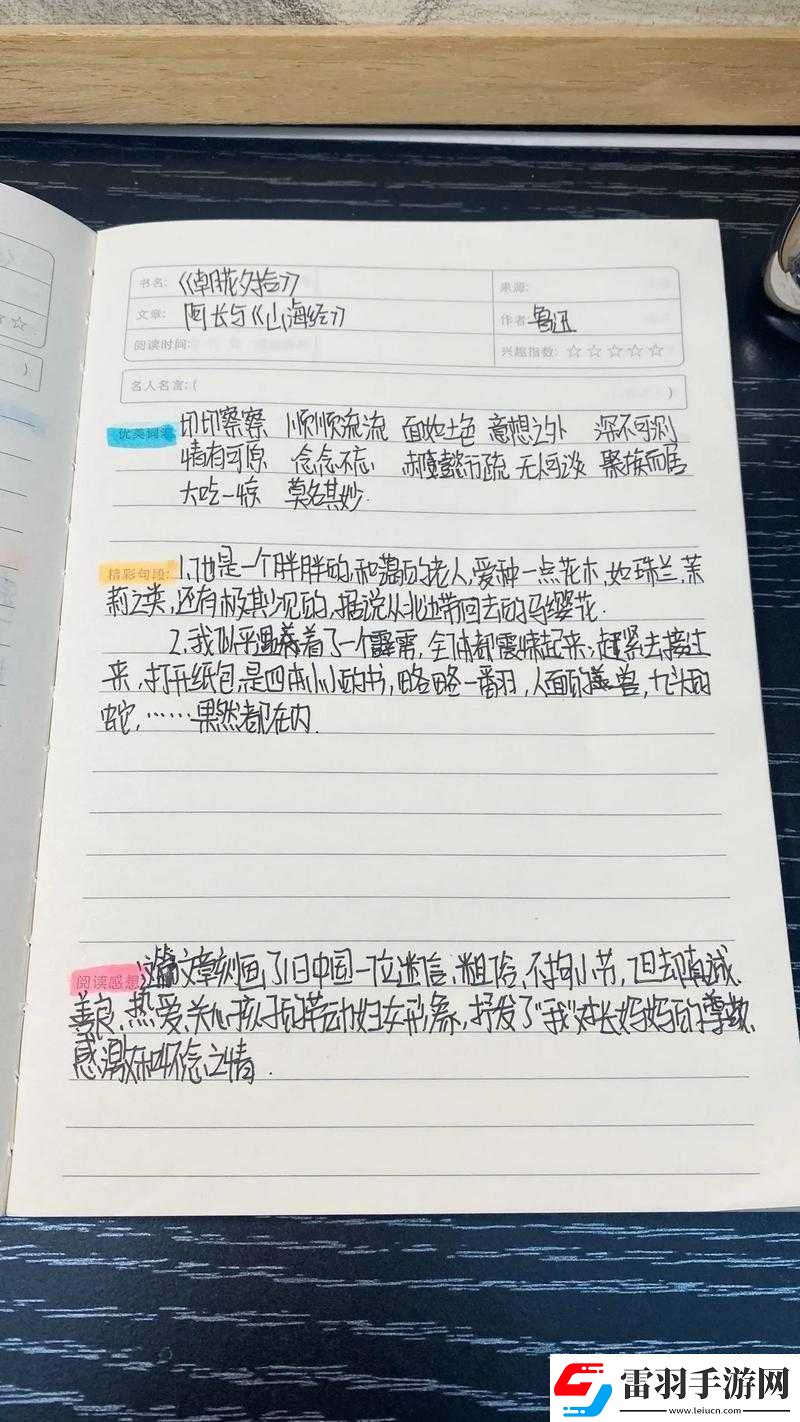 书名: 《朝花夕拾》
来源:
文章: 阿长与《山海经》
作者: 鲁迅
阅读时间:
兴趣指数: ☆☆☆☆☆
名人名言: ( )
优美词 切切察察 顺顺流流 面如土色 意想之外 深不可测
情有可原 念念不忘 疏懒 无人可谈 聚族而居
大吃一惊 莫名其妙.
精彩句段: 1.他是一个胖胖的,和蔼的老人,爱种一点花木,如珠兰,茉
莉之类,还有极其少见的,据说从北边带回去的马缨花.
2.我似乎遇着了一个霹雳,全体都震悚起来;赶紧去接过
来,打开纸包,是四本小小的书,略略一翻,人面的兽,九头的
蛇,……果然都在内.
阅读感想: 这篇文章刻画了旧中国一位迷信、粗俗、不拘小节,但却真诚、
善良、热爱、关心孩子的劳动妇女形象,抒发了"我"对长妈妈的尊敬、
感激和怀念之情.
雷羽手游网
www.leiucn.com